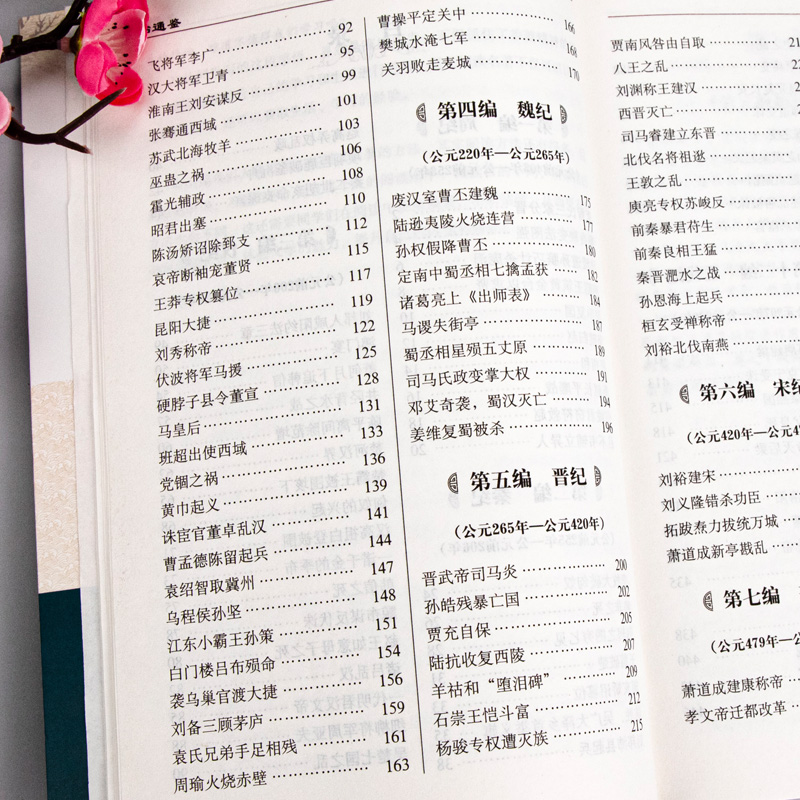 通鉴
飞将军李广 92
汉大将军卫青 95
淮南王刘安谋反 99
张骞通西域 101
苏武北海牧羊 103
巫蛊之祸 106
霍光辅政 108
昭君出塞 110
陈汤矫诏除郅支 112
哀帝断袖宠董贤 115
王莽专权篡位 117
昆阳大捷 119
刘秀称帝 122
伏波将军马援 125
硬脖子县令董宣 128
马皇后 131
班超出使西域 133
党锢之祸 136
黄巾起义 139
诛宦官董卓乱汉 141
曹孟德陈留起兵 144
袁绍智取冀州 147
乌程侯孙坚 148
江东小霸王孙策 151
白门楼吕布殒命 154
袭乌巢官渡大捷 156
刘备三顾茅庐 159
袁氏兄弟手足相残 161
周瑜火烧赤壁 163
曹操平定关中 166
樊城水淹七军 168
关羽败走麦城 170
第四编 魏纪
（公元220年—公元265年）
废汉室曹丕建魏 175
陆逊夷陵火烧连营 177
孙权假降曹丕 180
定南中蜀丞相七擒孟获 182
诸葛亮上《出师表》 184
马谡失街亭 187
蜀丞相星殒五丈原 189
司马氏政变掌大权 191
邓艾奇袭，蜀汉灭亡 194
姜维复蜀被杀 196
第五编 晋纪
（公元265年—公元420年）
晋武帝司马炎 200
孙皓残暴亡国 202
贾充自保 205
陆抗收复西陵 207
羊祜和“堕泪碑” 209
石崇王恺斗富 212
杨骏专权遭灭族 215
贾南风咎由自取
八王之乱
刘渊称王建汉
西晋灭亡
司马睿建立东晋
北伐名将祖逖
王敦之乱
庾亮专权苏峻反
前秦暴君苻生
前秦良相王猛
秦晋淝水之战
孙恩海上起兵
桓玄受禅称帝
刘裕北伐南燕
第六编 宋纪
（公元420年—公元
刘裕建宋
刘义隆错杀功臣
拓跋焘力拔统万城
萧道成新亭戡乱
第七编
（公元479年—公
萧道成建康称帝
孝文帝迁都改革